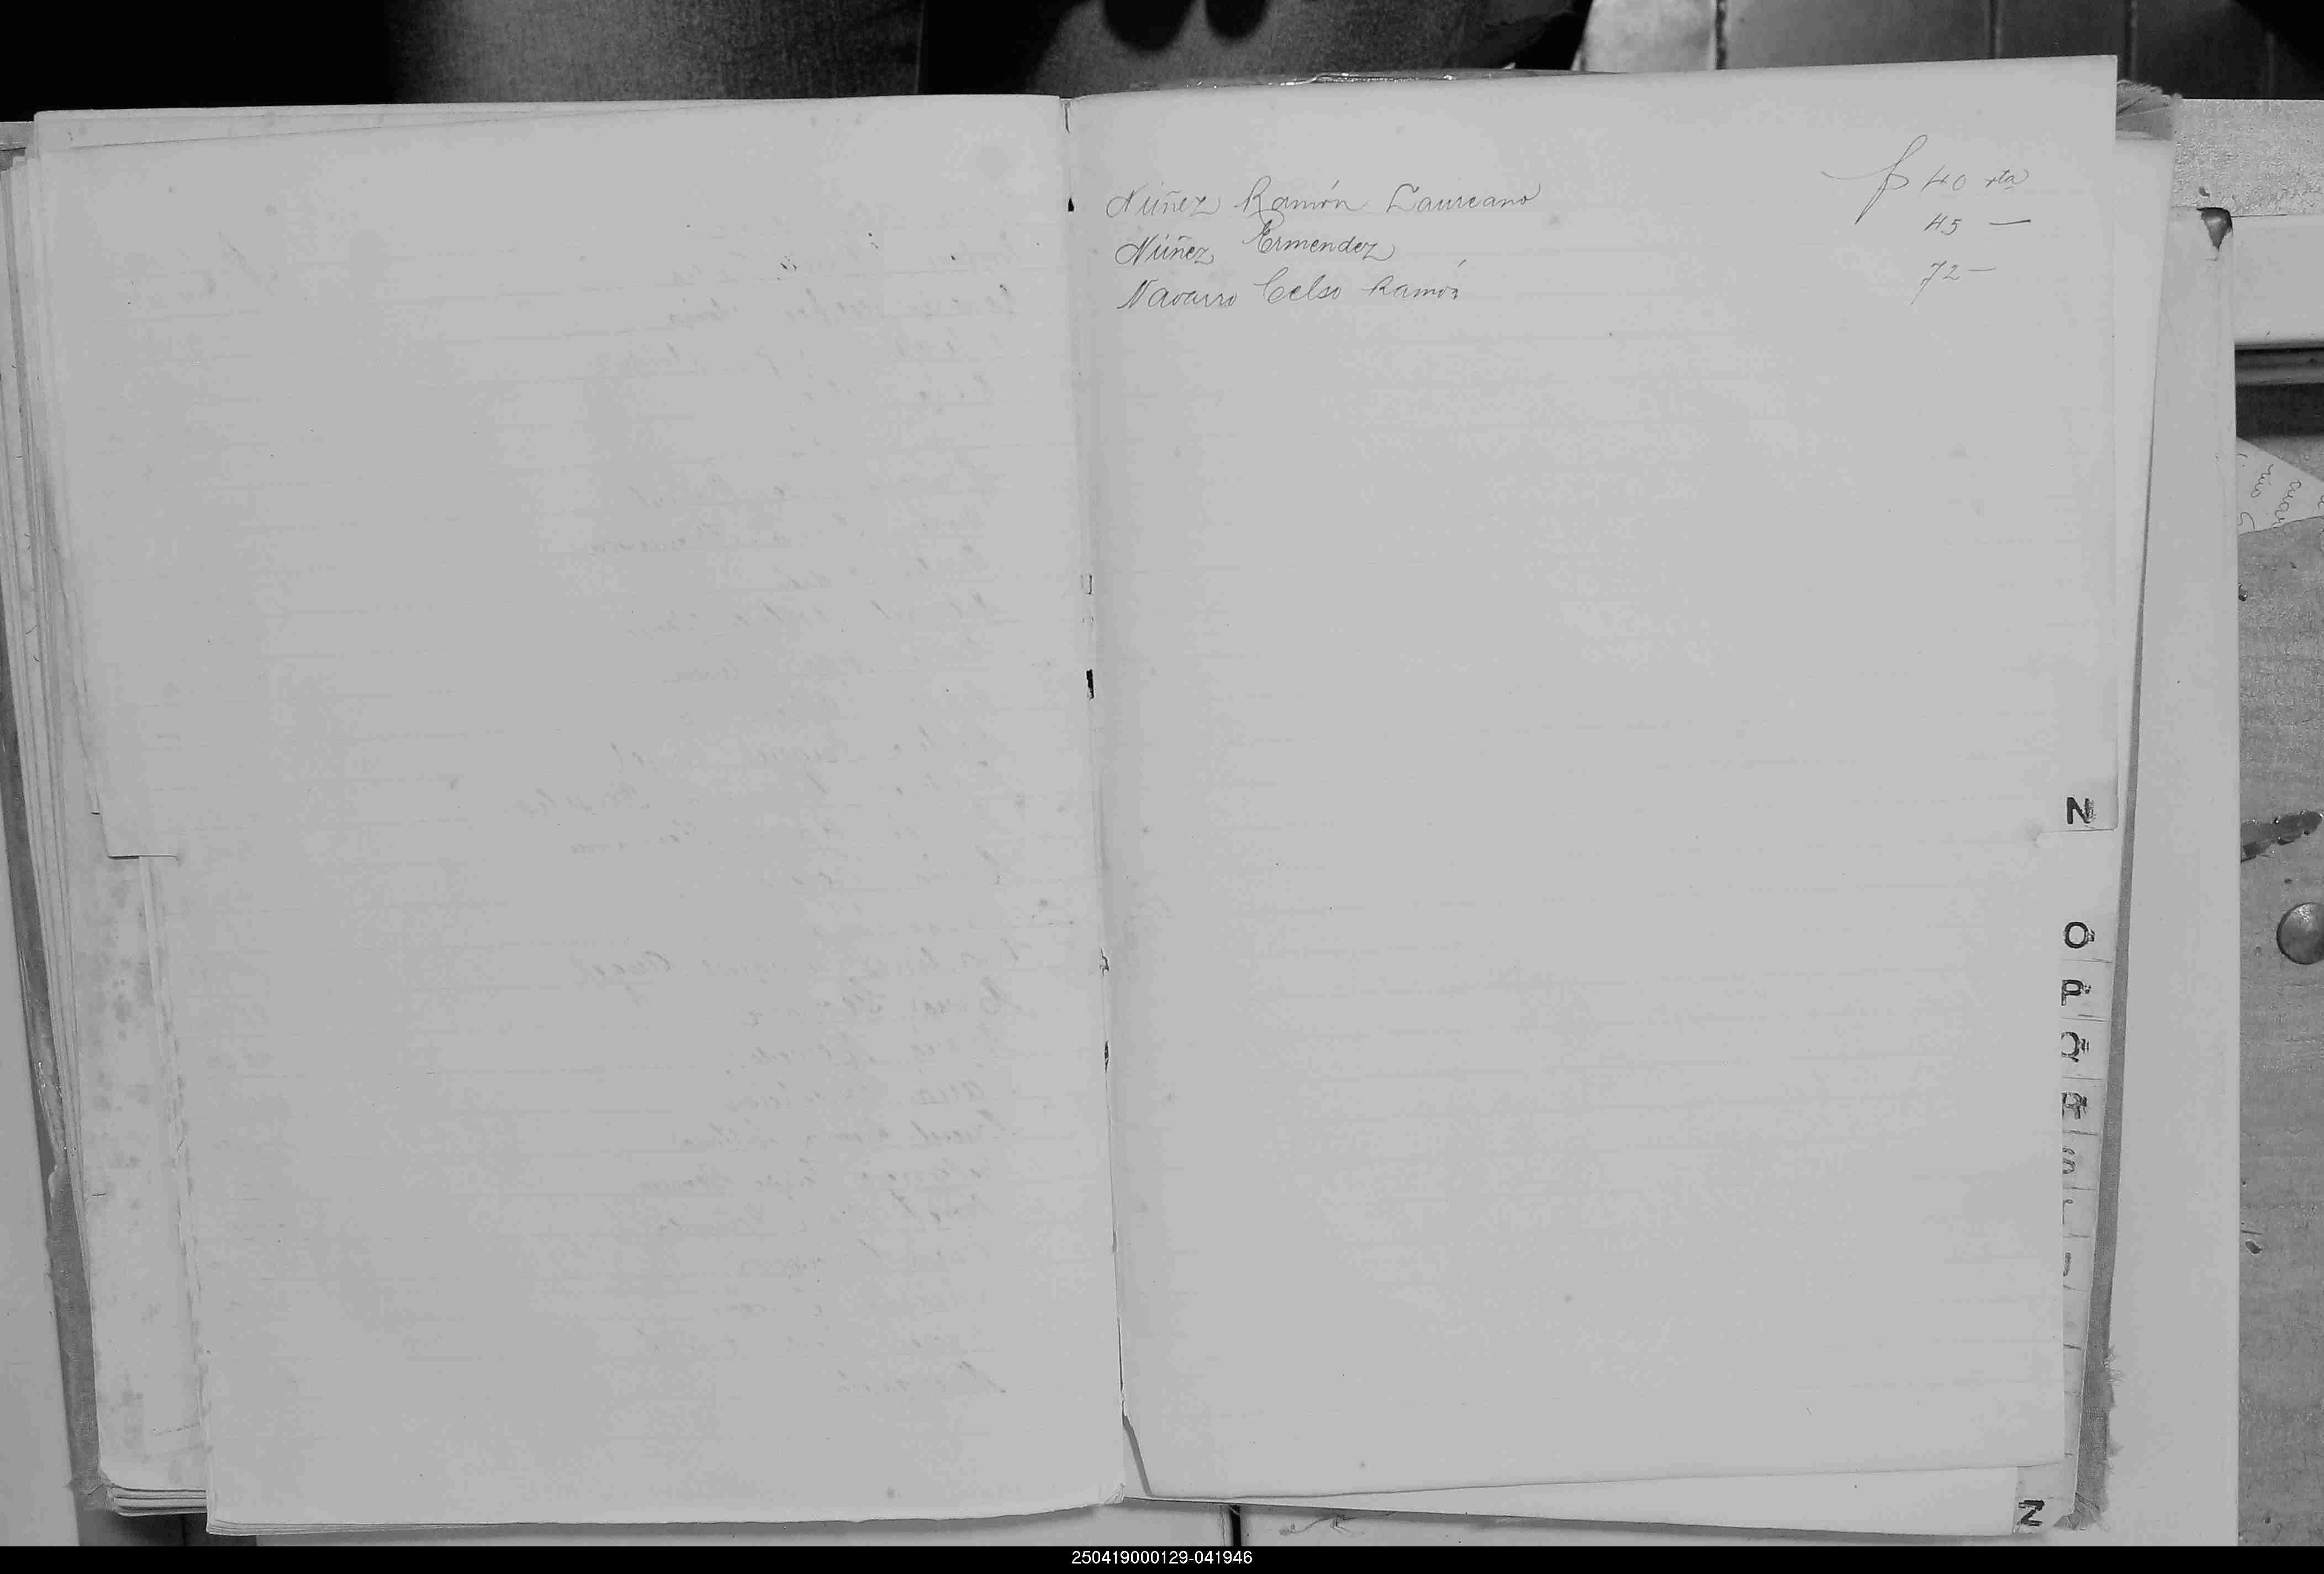 Núñez Ramón Laureano f 40 vta
Núñez Ermendez 45 —
Navarro Celso Ramón 72 —
N
O
P
Q
R
S
Z
250419000129-041946